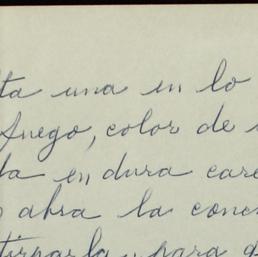 ta una en lo
fuego, color de
la en dura care
abra la conc
tirparla, para